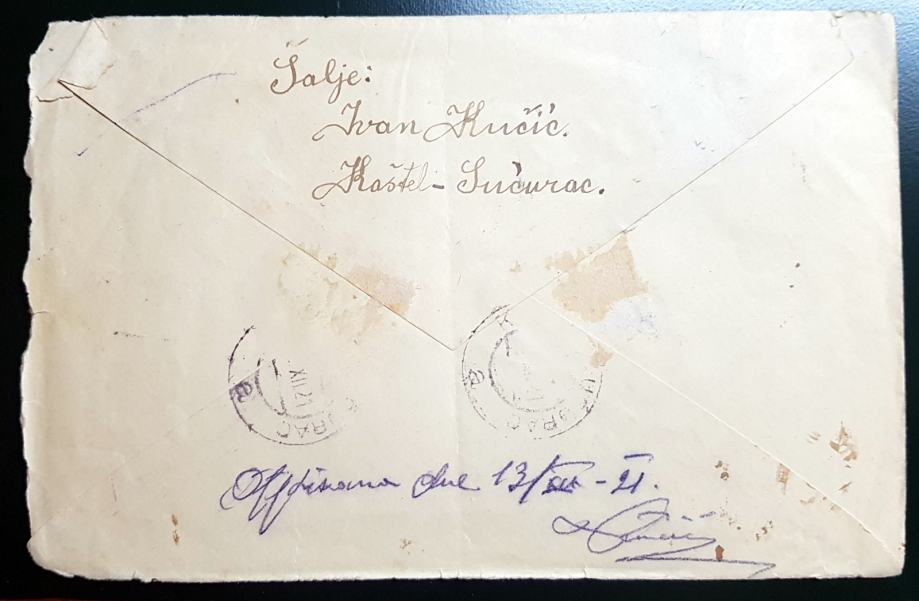 Šalje:
Ivan Kučić.
Kaštel-Sućurac.
URAC
a
K
a
URAC
Otpisana dne 13/XII - 21.